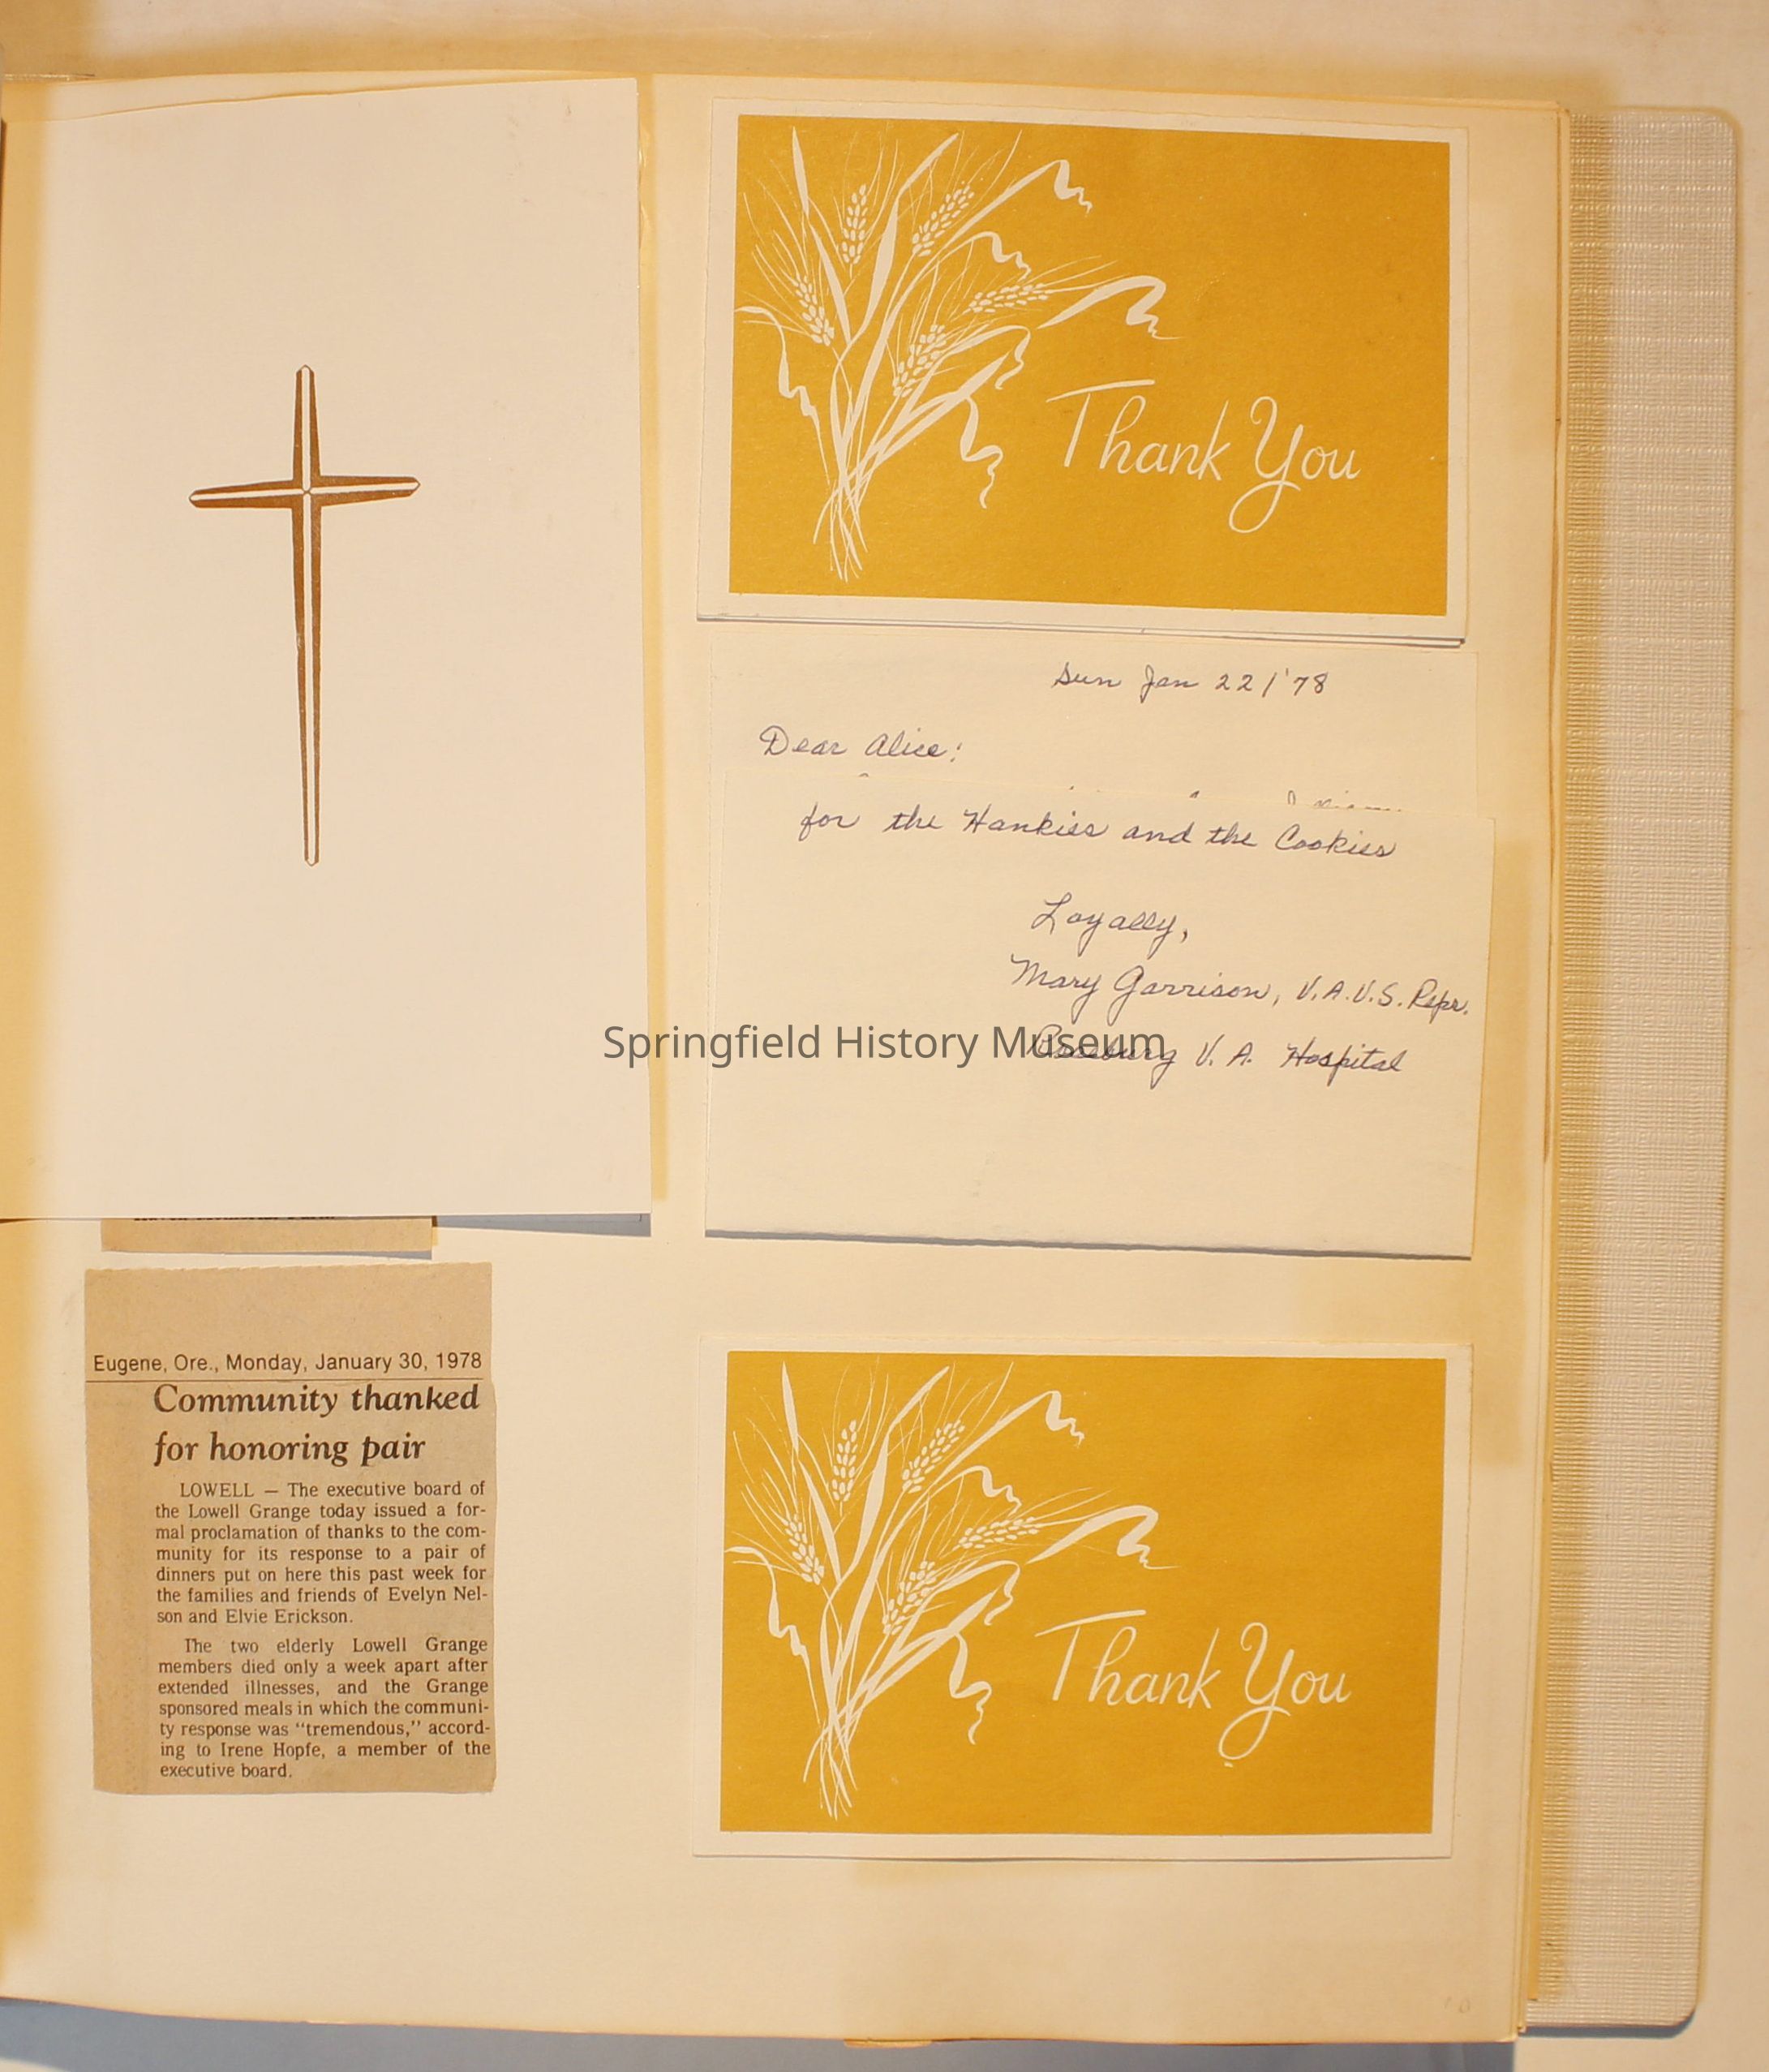 Thank You
Sun Jan 22/'78
Dear Alice:
for the Hankies and the Cookies
Loyally,
Mary Garrison, V.A.V.S. Repr.
Roseburg V. A. Hospital
Springfield History Museum
Eugene, Ore., Monday, January 30, 1978
Community thanked
for honoring pair
LOWELL — The executive board of
the Lowell Grange today issued a for-
mal proclamation of thanks to the com-
munity for its response to a pair of
dinners put on here this past week for
the families and friends of Evelyn Nel-
son and Elvie Erickson.
The two elderly Lowell Grange
members died only a week apart after
extended illnesses, and the Grange
sponsored meals in which the communi-
ty response was "tremendous," accord-
ing to Irene Hopfe, a member of the
executive board.
Thank You